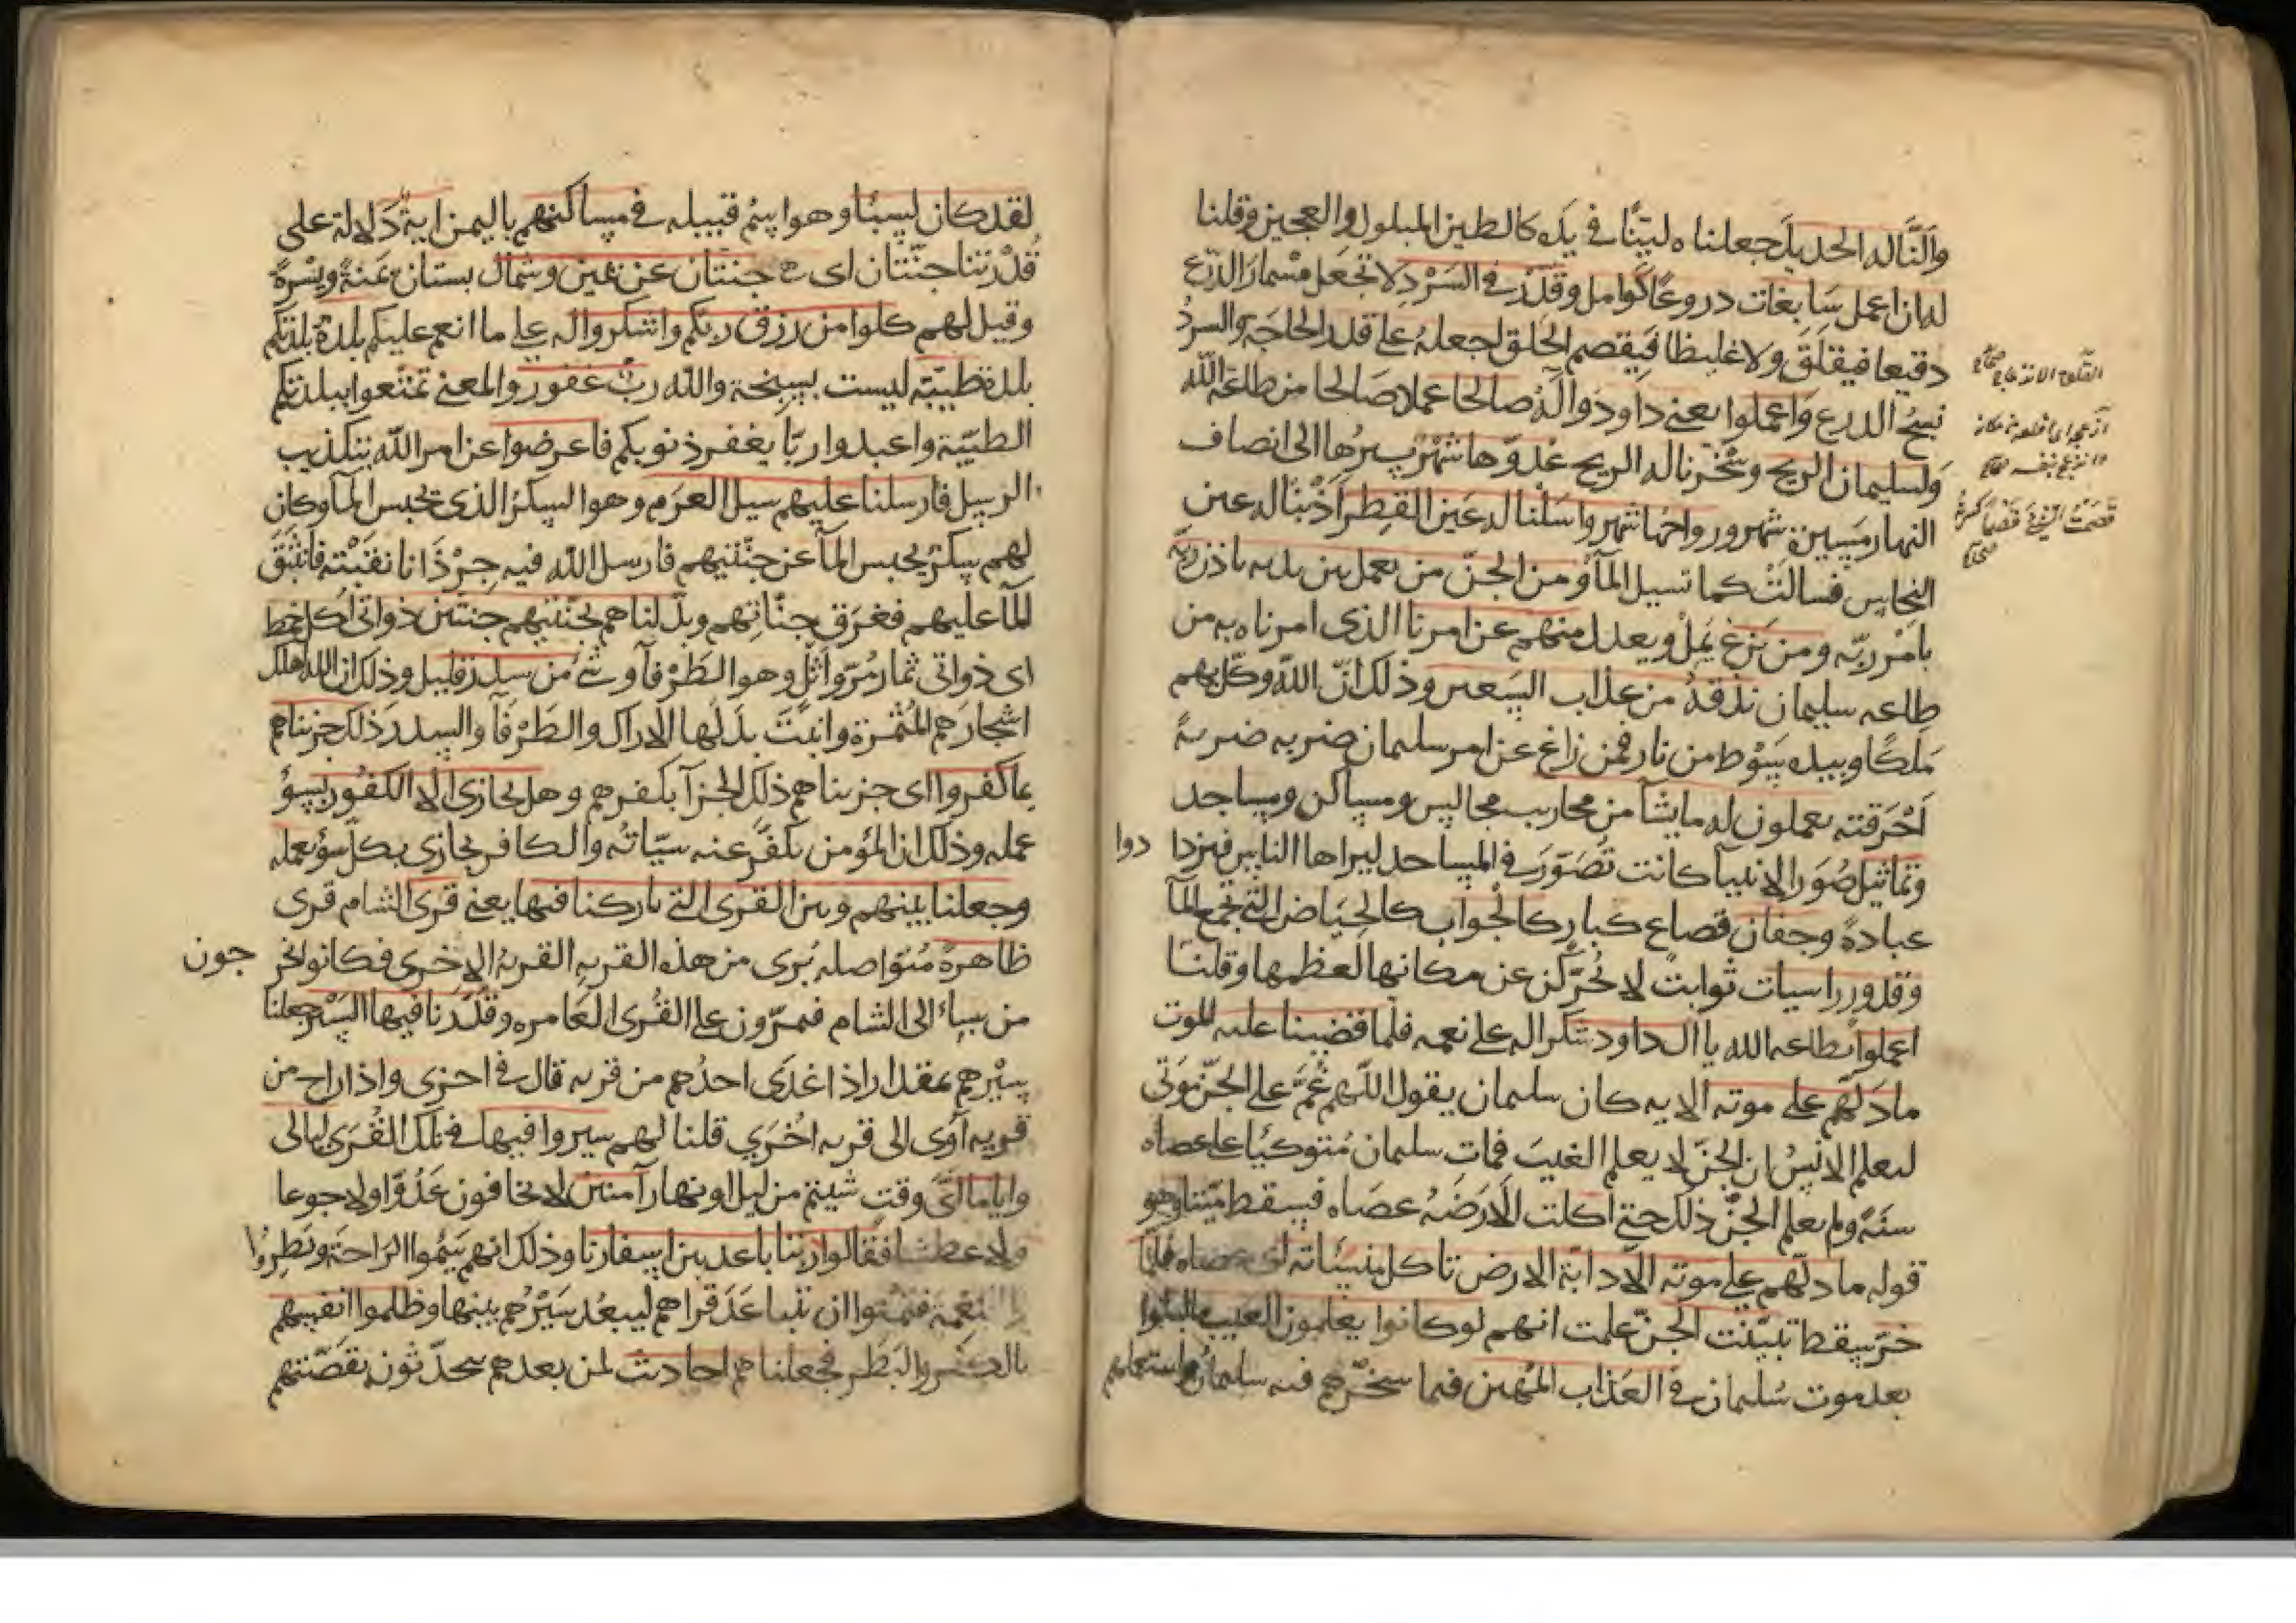 والنّا له الحديد جعلناه ليّنًا في يده كالطين المبلول والعجين وقلنا
له ان اعمل سابغات دروعًا كوامل وقدّر في السرد لا تجعل مسمار الدرع
دقيقا فيقلق ولا غليظا فيقصم الحلق اجعله على قدر الحاجة والسرد
نسج الدرع واعملوا يعني داود وآله صالحا عملا صالحا من طاعة الله
ولسليمان الريح وسخّرنا له الريح غدوّها شهر سيرها الى انصاف
النهار مسيرة شهر ورواحها شهر واسلنا له عين القطر اذبنا له عين
النحاس فسالت كما تسيل المآ ومن الجنّ من يعمل بين يديه باذن ربه
بامر ربّه ومن يزغ يمل ويعدل منهم عن امرنا الذي امرناه به من
طاعه سليمان نذقه من عذاب السعير وذلك انّ الله وكّل بهم
ملكًا وبيده سوط من نار فمن زاغ عن امر سليمان ضربه ضربةً
احرقته يعملون له ما يشآ من محاريب مجالس ومساكن ومساجد
وتماثيل صور الانبيآ كانت تصوّر في المساجد ليراها الناس فيزدا دوا
عبادةً وجفان قصاع كبار كالجواب كالحياض التي تجمع المآ
وقدور راسيات ثوابت لا تحرّكن عن مكانها لعظمها وقلنا
اعملوا بطاعه الله يا ال داود شكرا له على نعمه فلما قضينا عليه الموت
ما دلّهم على موته الايه كان سليمان يقول اللّهم غمّ على الجنّ موتي
ليعلم الانس ان الجنّ لا يعلم الغيب فمات سليمان متوكئا على عصاه
سنةً ولم يعلم الجنّ ذلك حتى اكلت الارضه عصاه فسقط ميّتا وهو
قوله ما دلّهم على موته الّا دابّة الارض تاكل منسأته اي عصاه فلمّا
خرّ سقط تبيّنت الجنّ علمت انهم لو كانوا يعلمون الغيب ما لبثوا
بعد موت سليمان في العذاب المهين فيما سخّرهم فيه سليمان واستعملهم
لقد كان لسبأ وهو اسم قبيله في مساكنهم باليمن اية دلالة على
قدرتنا جنّتان اى جنتان عن يمين وشمال بستان يمنةً ويسرةً
وقيل لهم كلوا من رزق ربكم واشكروا له على ما انعم عليكم بلدة بلدتكم
بلدة طيّبة ليست بسبخة والله ربّ غفور والمعنى تمتّعوا ببلدتكم
الطيّبة واعبدوا ربّا يغفر ذنوبكم فاعرضوا عن امر الله بتكذيب
الرسل فارسلنا عليهم سيل العرم وهو السكر الذي تحبس المآ وكان
لهم سكر يحبس المآ عن جنّتيهم فارسل الله فيه جرذانا نقبته فانبثق
المآ عليهم فغرق جنّاتهم وبدّلناهم بجنّتيهم جنتين ذواتى اكل خمط
اى ذواتى ثمار مرّ واثل وهو الطرفآ وشئ من سدر قليل وذلك ان الله اهلك
اشجارهم المثمرة وانبت بدلها الاراك والطرفآ والسدر ذلك جزيناهم
بما كفروا اى جزيناهم ذلك الجزآ بكفرهم وهل يجازى الّا الكفور بسوء
عمله وذلك ان المؤمن تكفّر عنه سيّاته والكافر يجازى بكلّ سوء يعمله
وجعلنا بينهم وبين القرى التي باركنا فيها يعني قرى الشام قرى
ظاهرة متواصله يرى من هذه القريه القريه الاخرى فكانوا يخر جون
من سبأ الى الشام فيمرّون على القرى العامره وقدّرنا فيها السير جعلنا
سيرهم بمقدار اذا غدى احدهم من قريه قال في اخرى واذا راح من
قريه آوى الى قريه اخرى قلنا لهم سيروا فيها في تلك القرى ليالى
واياما اىّ وقت شيتم من ليل او نهار آمنين لا تخافون عدوًّا ولا جوعا
ولا عطشا فقالوا ربّنا باعد بين اسفارنا وذلك انهم سئموا الراحة وبطروا
النعمة فتمنّوا ان تتباعد قراهم ليبعد سيرهم بينها وظلموا انفسهم
بالكفر والبطر فجعلناهم احاديث لمن بعدهم يتحدّثون بقصّتهم